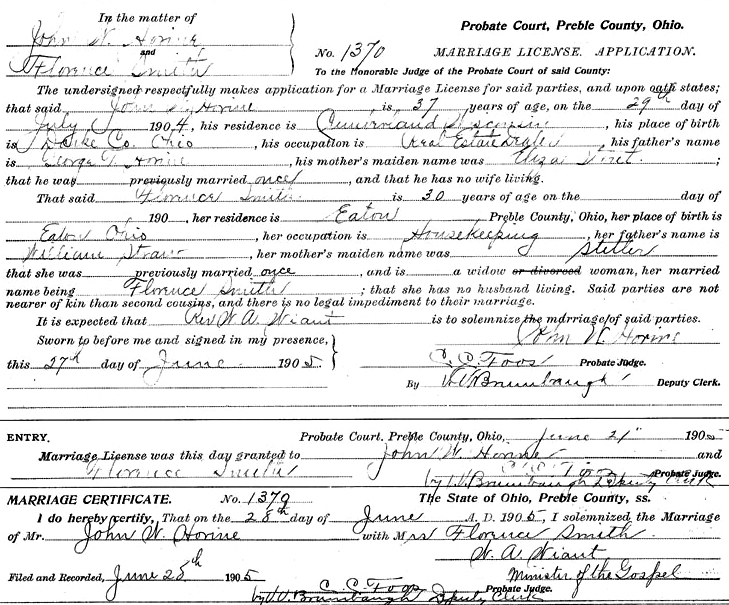 In the matter of
John W. Horine
and
Florence Smith
Probate Court, Preble County, Ohio.
No. 1370 MARRIAGE LICENSE. APPLICATION.
To the Honorable Judge of the Probate Court of said County:
The undersigned respectfully makes application for a Marriage License for said parties, and upon oath states;
that said John W. Horine is 37 years of age, on the 29th day of
July 1904, his residence is Wisconsin, his place of birth
is Darke Co. Ohio, his occupation is Real Estate Dealer, his father's name
is George Horine, his mother's maiden name was ;
that he was previously married once, and that he has no wife living.
That said Florence Smith is 30 years of age on the day of
190 , her residence is Eaton Preble County, Ohio, her place of birth is
Eaton Ohio, her occupation is Housekeeping, her father's name is
William Straw, her mother's maiden name was
that she was previously married once, and is a widow or divorced woman, her married
name being Florence Smith; that she has no husband living. Said parties are not
nearer of kin than second cousins, and there is no legal impediment to their marriage.
It is expected that Rev W. A. Wiant is to solemnize the marriage of said parties.
Sworn to before me and signed in my presence, John W. Horine
this 27th day of June 1905. C. C. Foos Probate Judge.
By Brumbaugh Deputy Clerk.
ENTRY. Probate Court, Preble County, Ohio, June 1905
Marriage License was this day granted to John W. Horine and
Florence Smith C. C. Foos Probate Judge.
by Brumbaugh Deputy Clerk
MARRIAGE CERTIFICATE. No. 1379 The State of Ohio, Preble County, ss.
I do hereby certify, That on the 28th day of June A. D. 1905, I solemnized the Marriage
of Mr. John W. Horine with Mrs Florence Smith
W. A. Wiant
Minister of the Gospel
Filed and Recorded, June 28th 1905 C. C. Foos Probate Judge.
by Brumbaugh Deputy Clerk